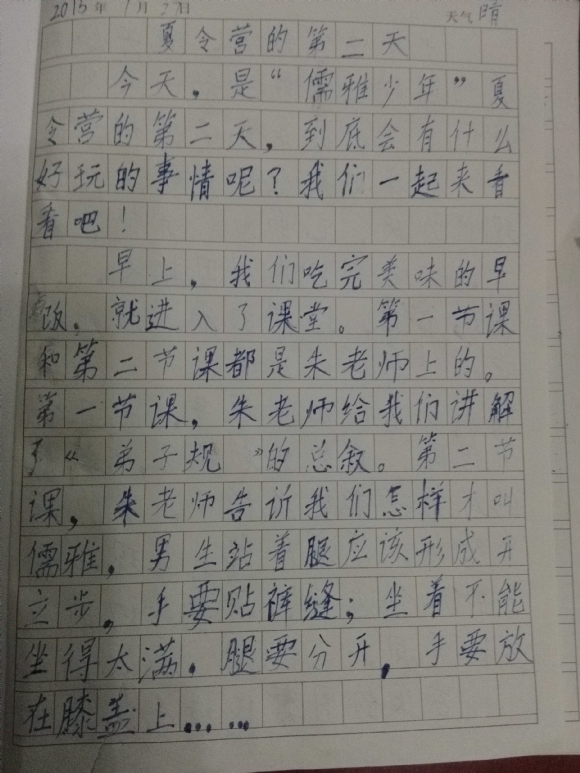 2015年7月7日 天气 晴
夏令营的第二天
今天，是“儒雅少年”夏
令营的第二天，到底会有什么
好玩的事情呢？我们一起来看
看吧！
早上，我们吃完美味的早
饭，就进入了课堂。第一节课
和第二节课都是朱老师上的。
第一节课，朱老师给我们讲解
了“弟子规”的总叙。第二节
课，朱老师告诉我们怎样才叫
儒雅，男生站着腿应该形成开
立步，手要贴裤缝；坐着不能
坐得太满，腿要分开，手要放
在膝盖上……